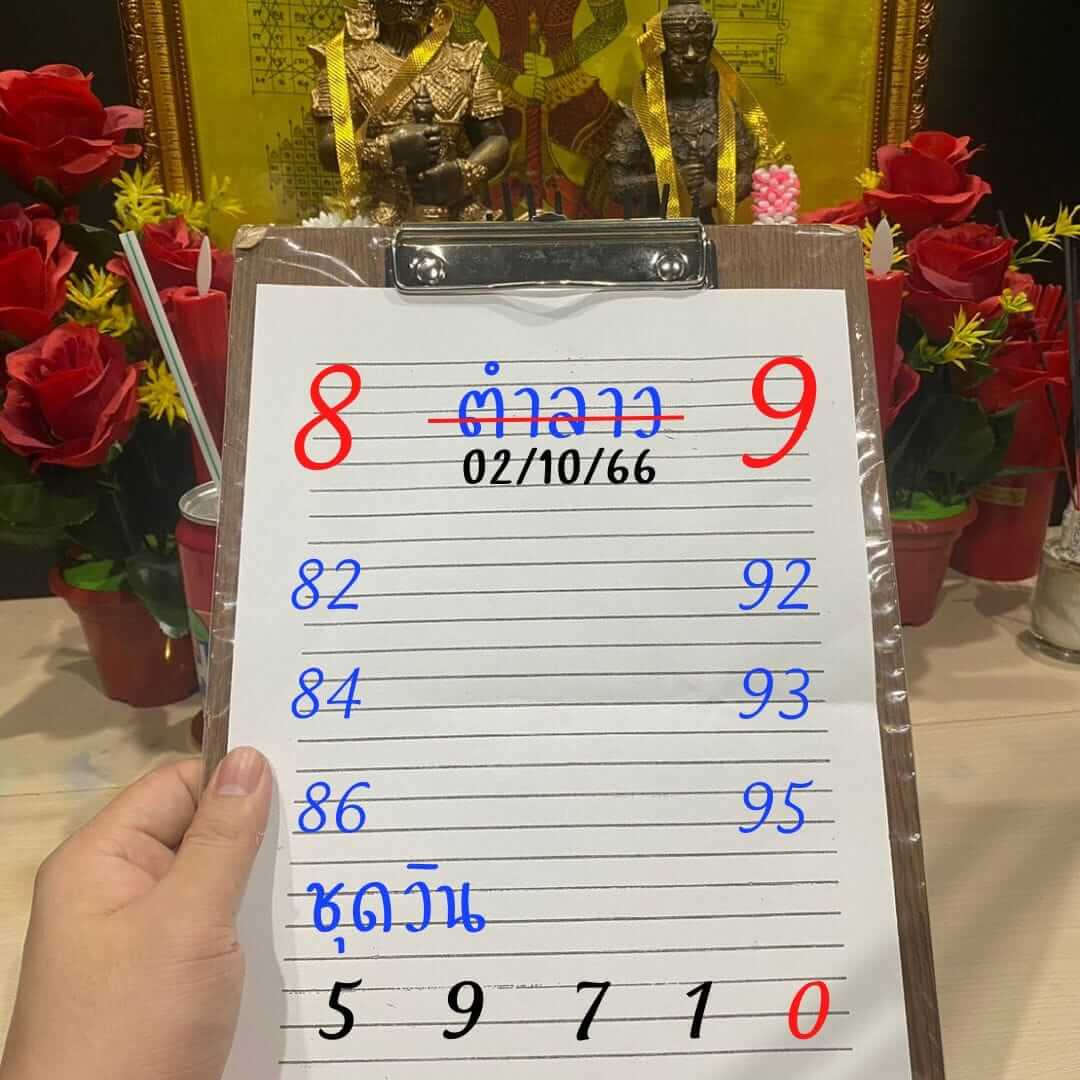 8 ตำลาว 9
02/10/66
82 92
84 93
86 95
ชุดวิน
5 9 7 1 0